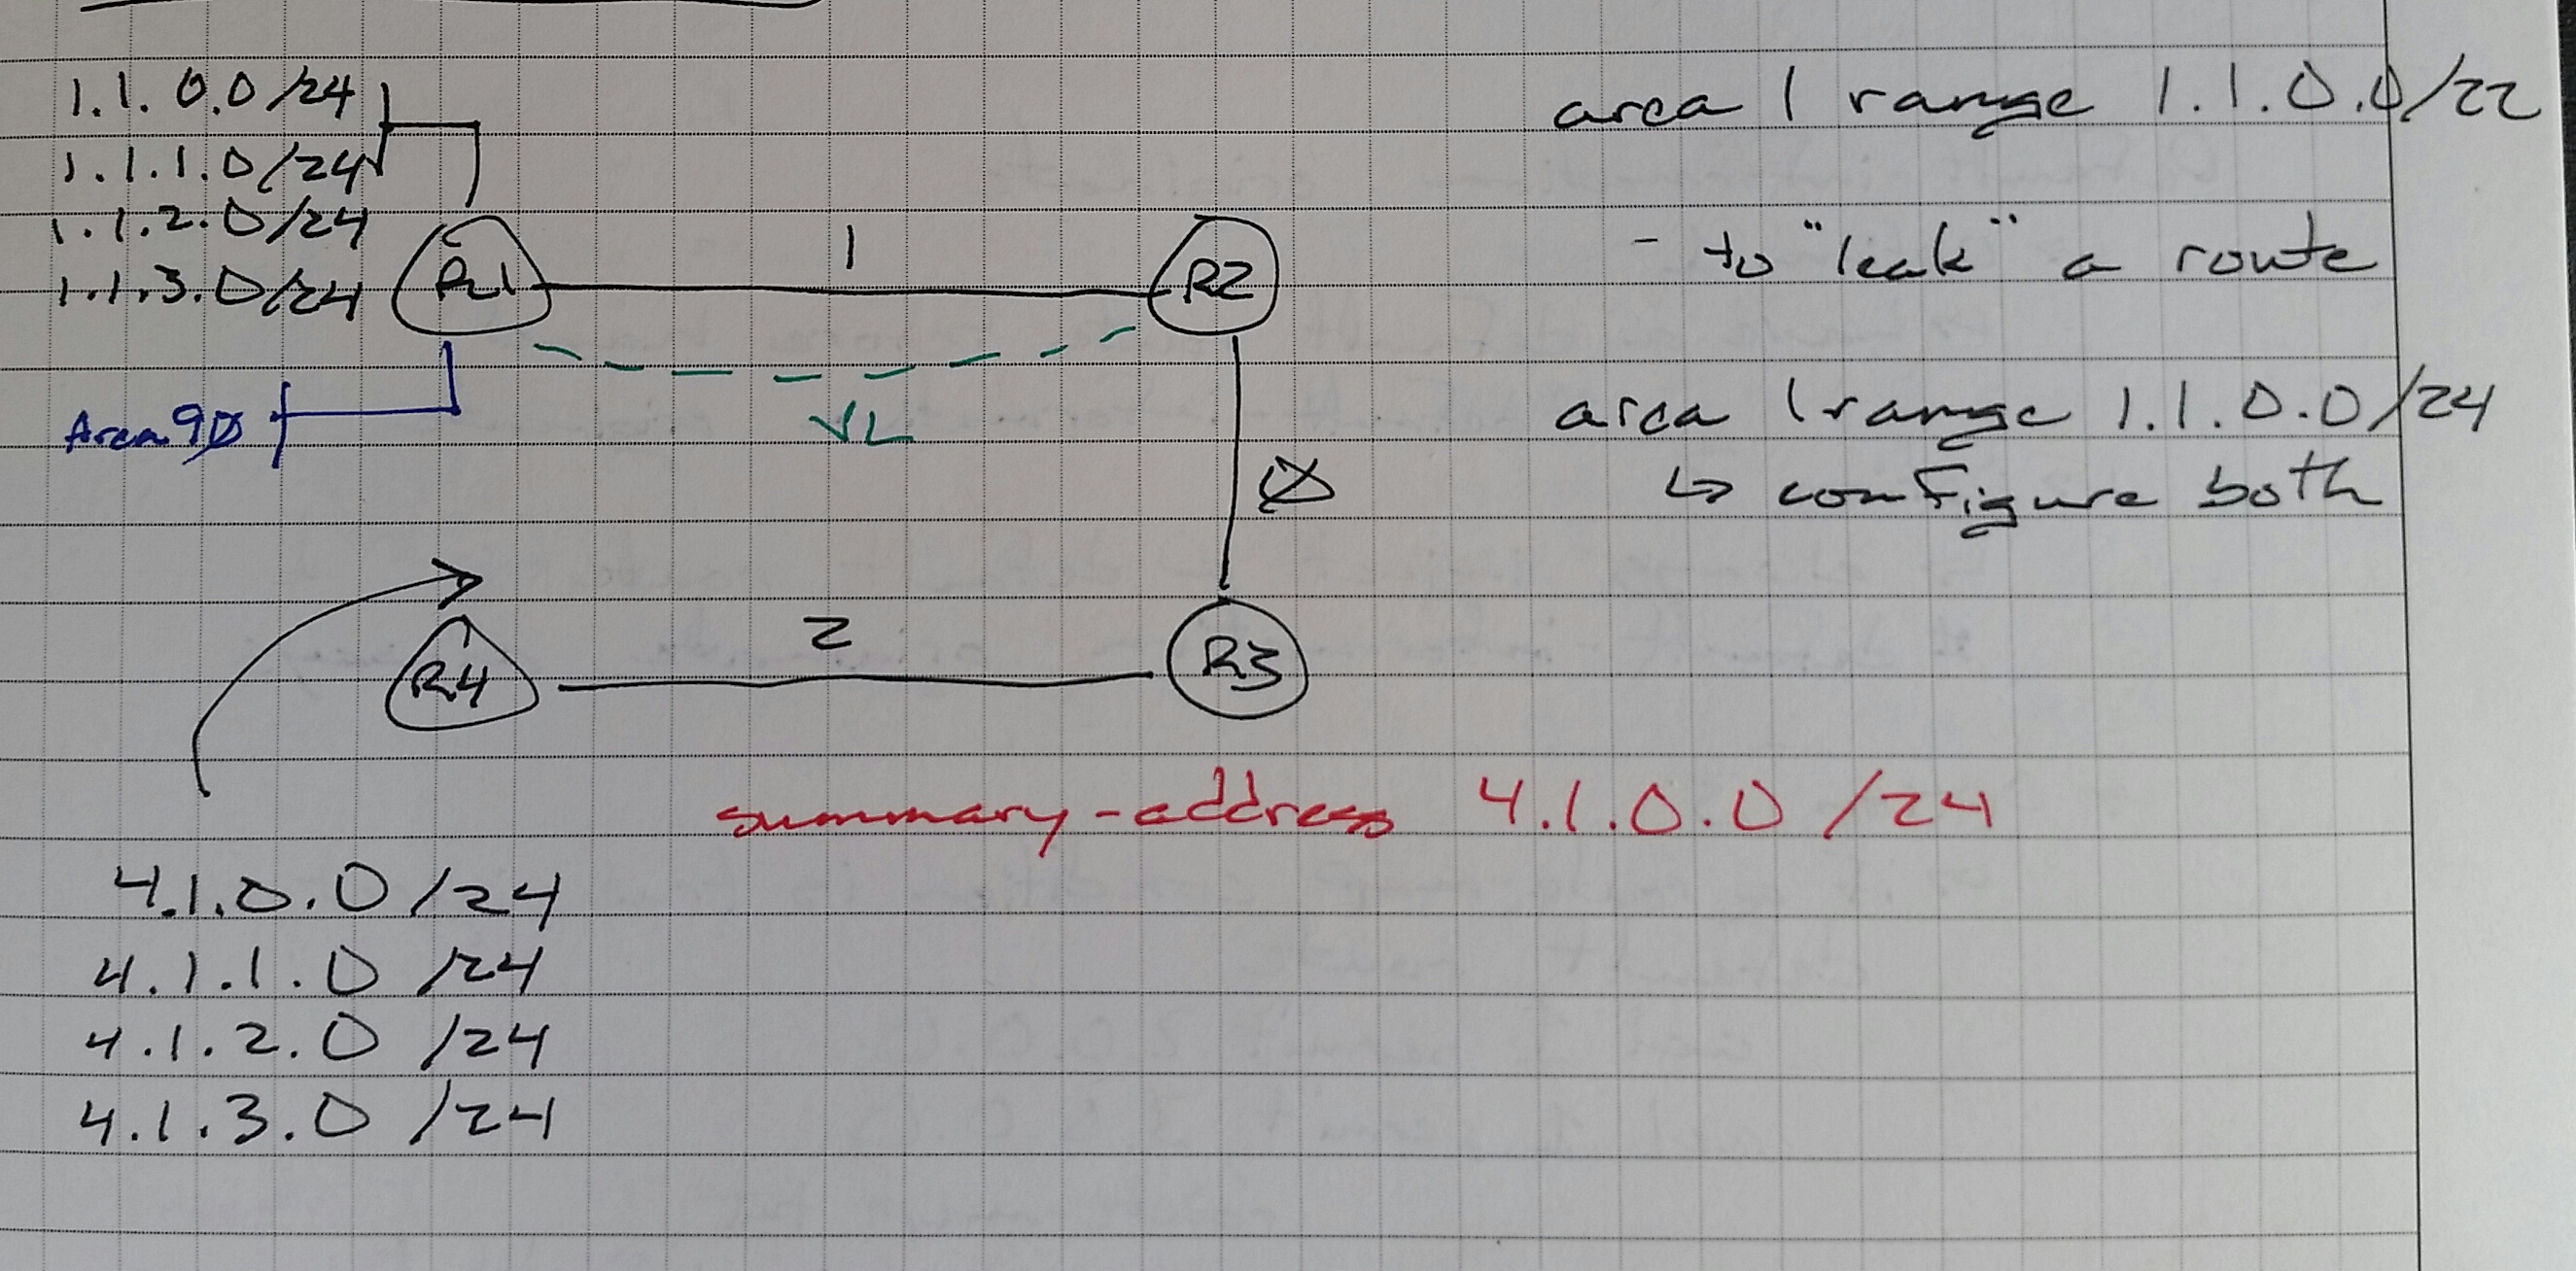 1.1.0.0/24
1.1.1.0/24
1.1.2.0/24
1.1.3.0/24
R1
1
R2
VL
Area 90
0
R4
2
R3
area 1 range 1.1.0.0/22
- to "leak" a route
area 1 range 1.1.0.0/24
↳ configure both
summary-address 4.1.0.0/24
4.1.0.0/24
4.1.1.0/24
4.1.2.0/24
4.1.3.0/24